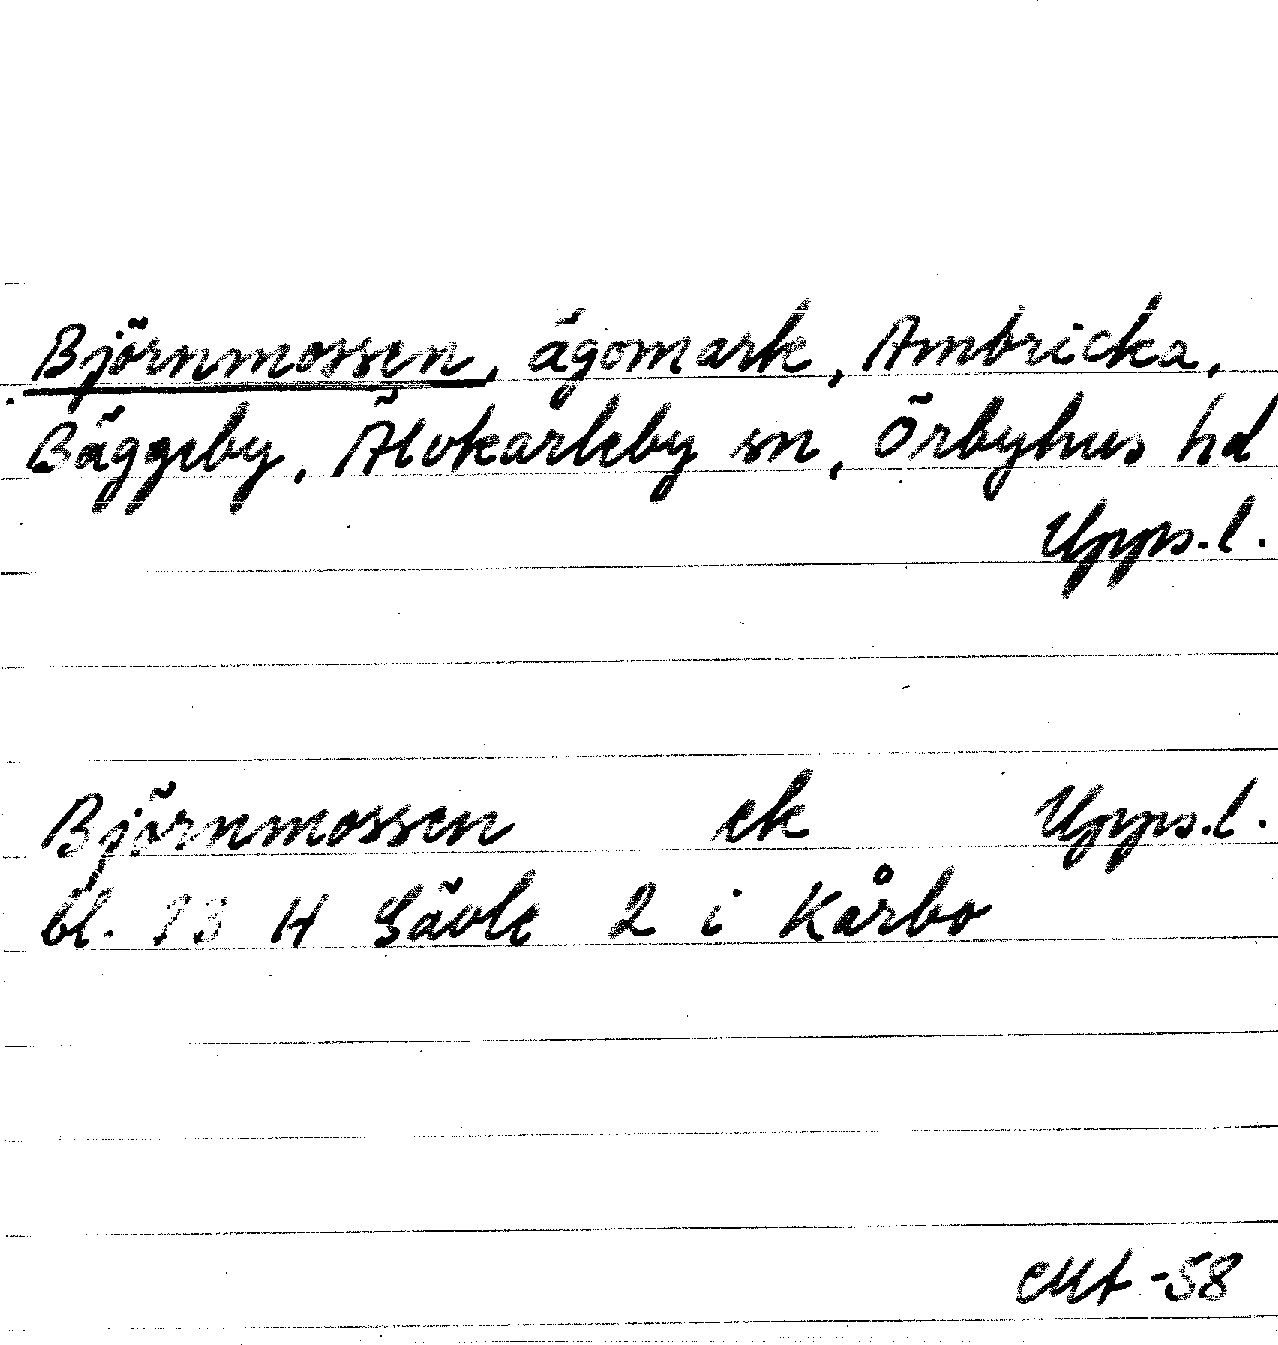 Björnmossen, ägomark, Ambricka,
Bäggeby, Älvkarleby sn, Örbyhus hd
Upps.l.
Björnmossen ek Upps.l.
bl. 13 H Gävle 2 i Kårbo
-58